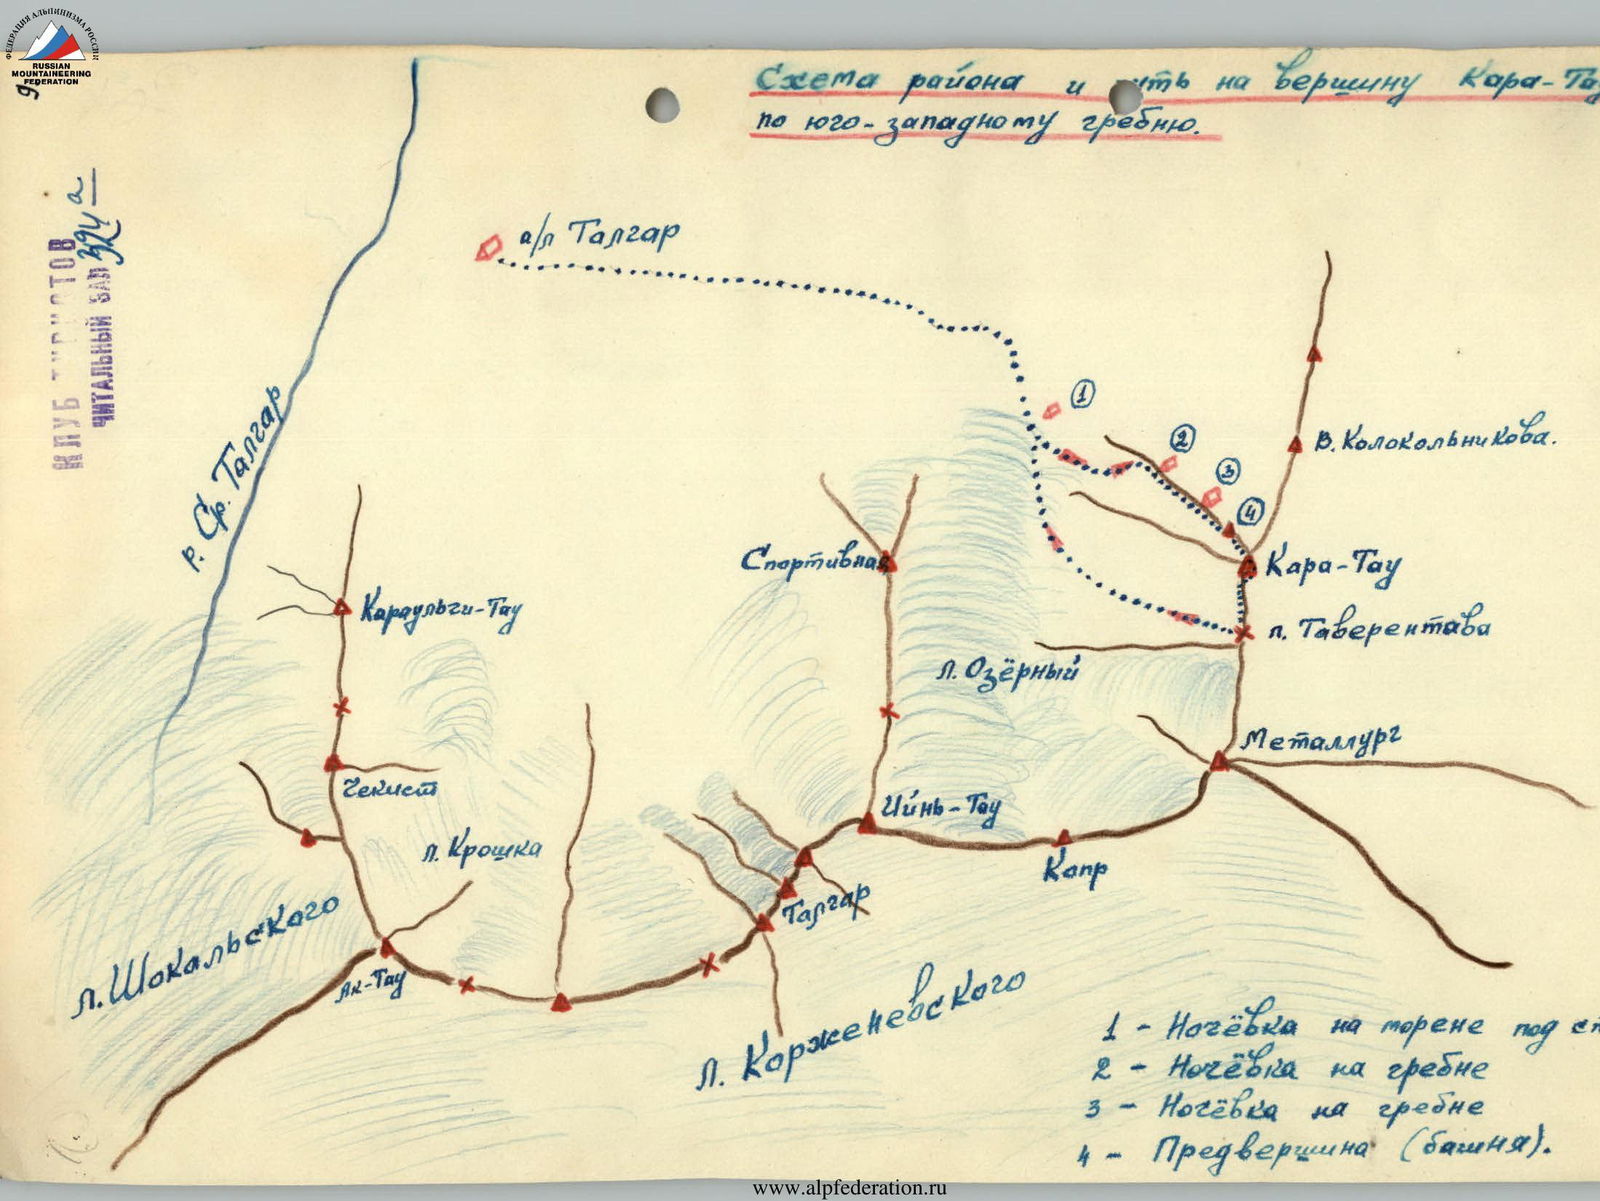 ФЕДЕРАЦИЯ АЛЬПИНИЗМА РОССИИ
RUSSIAN
MOUNTAINEERING
FEDERATION
Схема района и уть на вершину Кара-Тау
по юго-западному гребню.
КЛУБ ТУРИСТОВ
ЧИТАЛЬНЫЙ ЗАЛ
324 а
а/л Талгар
р. Ср. Талгар
1
2
3
4
В. Колокольникова.
Спортивная
Кара-Тау
Караульги-Тау
п. Таверентава
л. Озёрный
Металлург
Чекист
Ийнь-Тау
л. Крошка
Капр
Талгар
л. Шокальского
Ак-Тау
Л. Корженевского
1 - Ночёвка на морене под ст
2 - Ночёвка на гребне
3 - Ночёвка на гребне
4 - Предвершина (башня).
www.alpfederation.ru